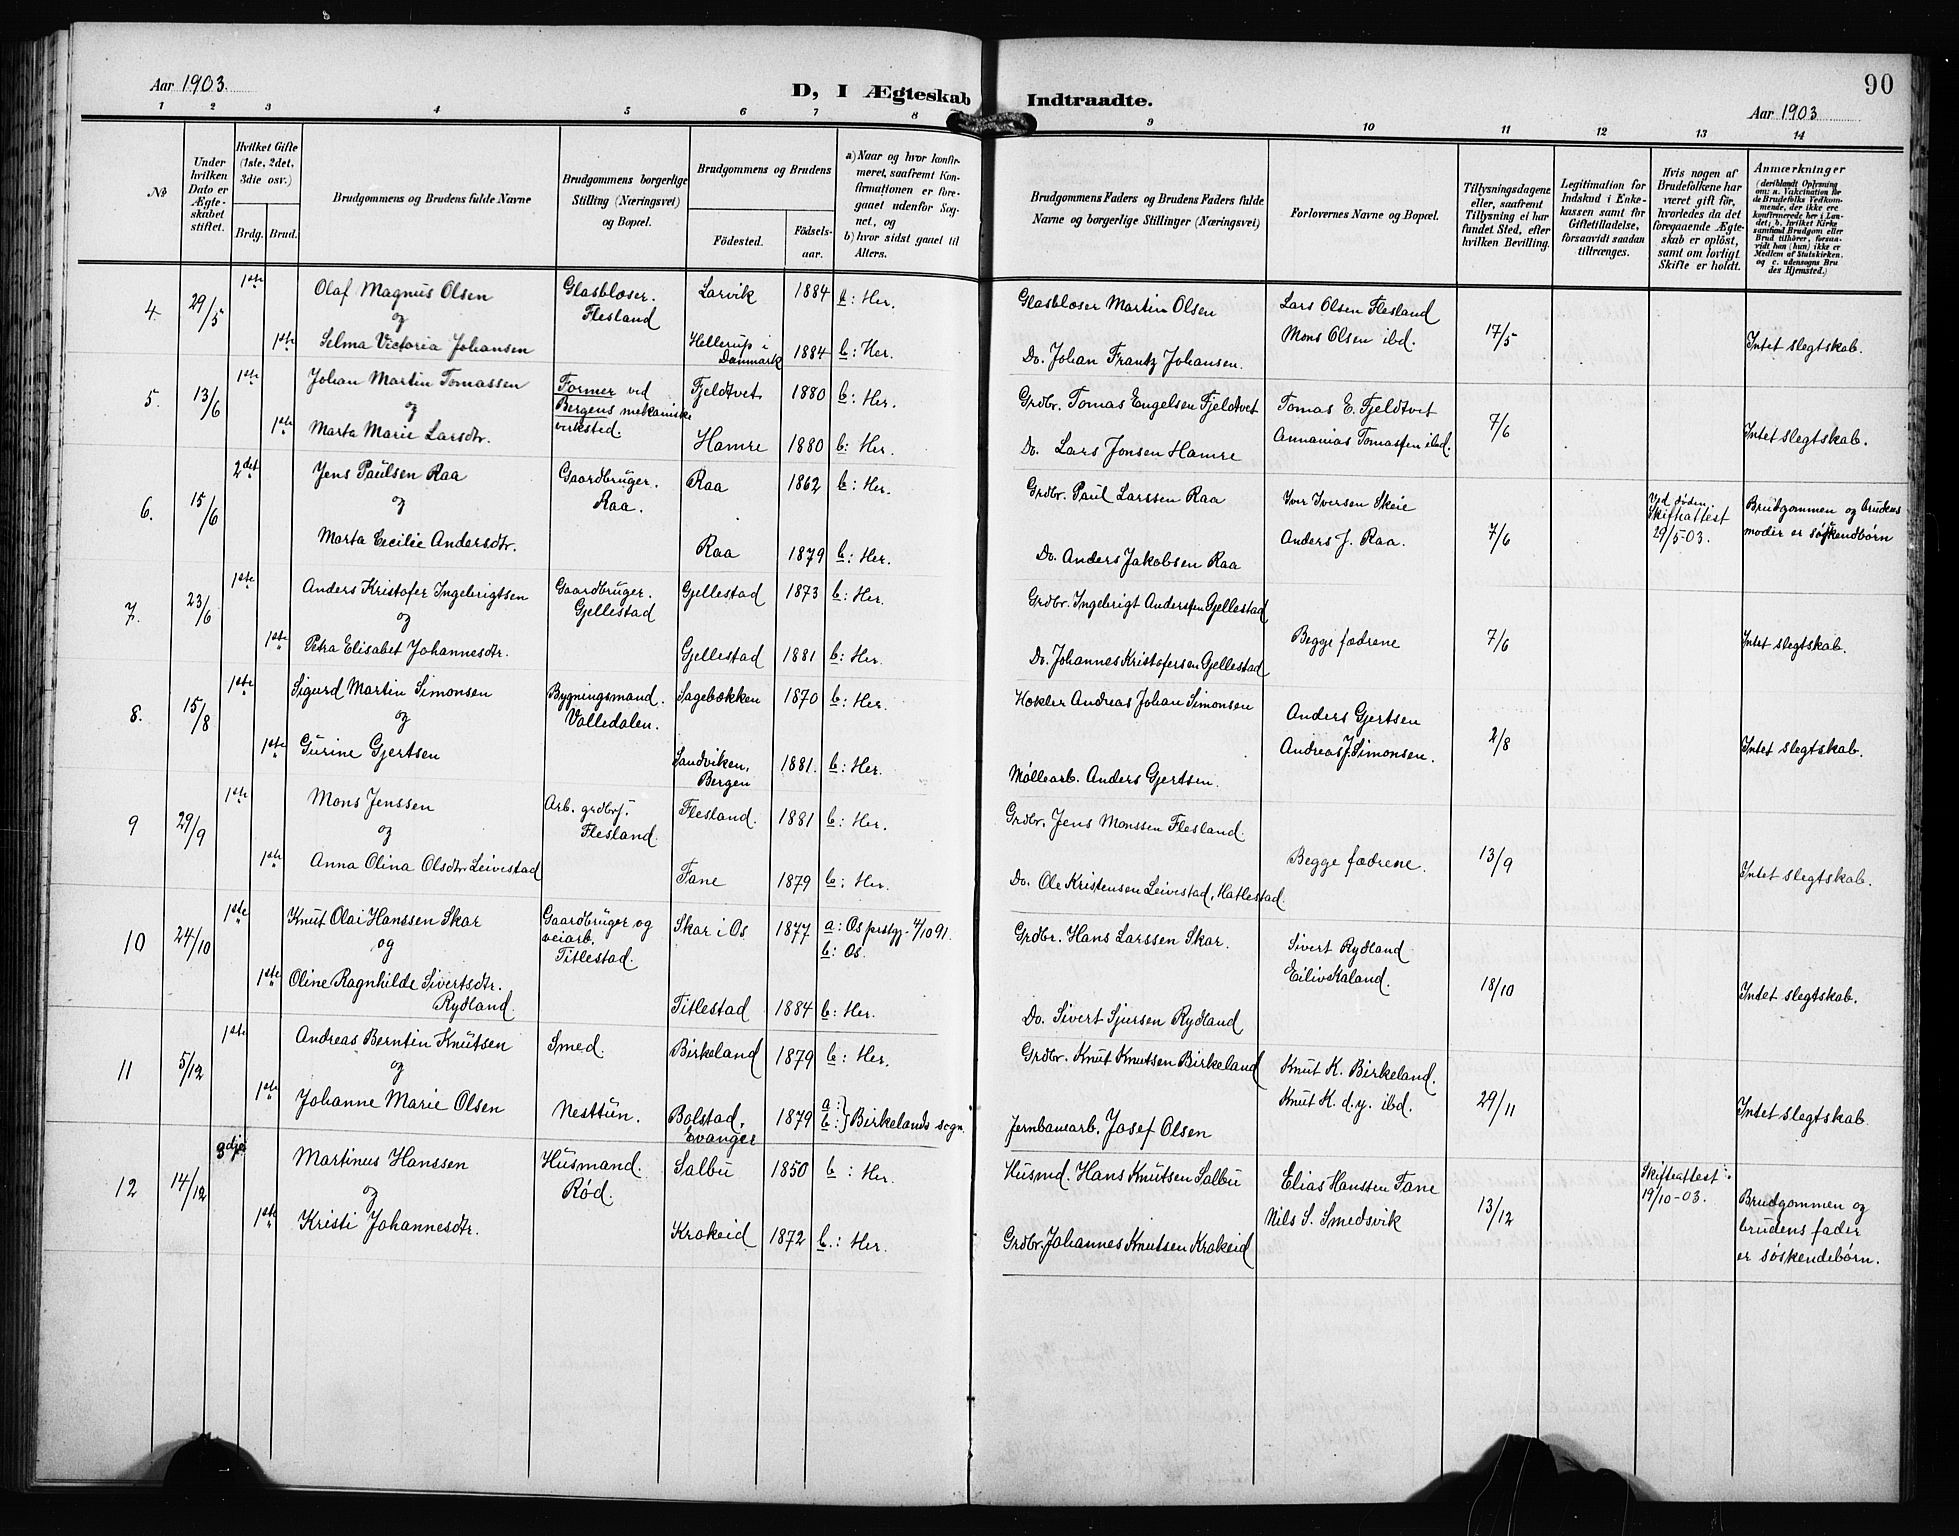 90
Aar 1903.
D, I Ægteskab Indtraadte.
Aar 1903
1 2 3 4 5 6 7 8 9 10 11 12 13 14
No
Under hvilken Dato er Ægteskabet stiftet.
Hvilket Gifte (1ste, 2det, 3die osv.)
Brdg. Brud.
Brudgommens og Brudens fulde Navne
Brudgommens borgerlige Stilling (Næringsvei) og Bopæl.
Brudgommens og Brudens
Födested. Födsels-aar.
a) Naar og hvor konfirmeret, saafremt Konfirmationen er foregaaet udenfor Sognet, og
b) hvor sidst gaaet til Alters.
Brudgommens Faders og Brudens Faders fulde Navne og borgerlige Stillinger (Næringsvei)
Forlovernes Navne og Bopæl.
Tillysningsdagene eller, saafremt Tillysning ei har fundet Sted, efter hvilken Bevilling.
Legitimation for Indskud i Enkekassen samt for Giftetilladelse, forsaavidt saadan tiltrænges.
Hvis nogen af Brudefolkene har været gift för, hvorledes da det foregaaende Ægteskab er oplöst, samt om lovligt Skifte er holdt.
Anmærkninger
(deriblandt Oplysning om: a. Vakcination for de Brudefolks Vedkommende, der ikke ere konfirmerede her i Landet; b. hvilket Kirkesamfund Brudgom eller Brud tilhörer, forsaavidt han (hun) ikke er Medlem af Statskirken. og c. udensogns Brudes Hjemsted.)
4. 29/5 1ste Olaf Magnus Olsen Glasblæser. Larvik 1884 b: Her. Glasblæser Martin Olsen Lars Olsen Flesland
og Flesland Mons Olsen ibd. 17/5
1ste Selma Victoria Johansen Hellerup i Danmark 1884 b: Her. Do. Johan Frantz Johansen. Intet slegtskab.
5. 13/6 1ste Johan Martin Tomassen Former ved Fjeldtvet 1880 b: Her. Grdbr. Tomas Engelsen Fjeldtvet Tomas E. Fjeldtvet
og Bergens mekaniske virksted. 7/6
1ste Marta Marie Larsdtr. Hamre 1880 b: Her. Do. Lars Jonsen Hamre Annanias Tomassen ibd. Intet slegtskab.
6. 15/6 2det Jens Paulsen Raa Gaardbruger. Raa 1862 b: Her. Grdbr. Paul Larssen Raa Iver Iversen Skeie Ved døden Skifteattest 29/5-03. Brudgommen og brudens
og Raa. 7/6 moder er søskendbørn
Marta Cecilie Andersdtr. Raa 1879 b: Her. Do. Anders Jakobsen Raa Anders J. Raa.
7. 23/6 1ste Anders Kristofer Ingebrigtsen Gaardbruger. Gjellestad 1873 b: Her. Grdbr. Ingebrigt Anderssen Gjellestad
og Gjellestad Begge fædrene 7/6
1ste Petra Elisabet Johannesdtr. Gjellestad 1881 b: Her. Do. Johannes Kristofersen Gjellestad Intet slegtskab.
8. 15/8 1ste Sigurd Martin Simonsen Bygningsmand. Sagebækken 1870 b: Her. Høkler Andreas Johan Simonsen Anders Gjertsen
og Valledalen. 2/8
1ste Gurine Gjertsen Sandviken, Bergen 1881. b: Her. Møllearb. Anders Gjertsen. Andreas J. Simonsen. Intet slegtskab.
9 29/9 1ste Mons Jenssen Arb. grdbrs. Flesland. 1881 b: Her. Grdbr. Jens Monssen Flesland.
og Flesland. Begge fædrene. 13/9
1ste Anna Olina Olsdtr. Leivestad Fane 1879 b: Her. Do. Ole Kristensen Leivestad, Hatlestad Intet slegtskab.
10 24/10 1ste Knut Olai Hanssen Skar Gaardbruger og Skar i Os 1877 a: Os prstgj. 4/10 91. Grdbr. Hans Larssen Skar. Sivert Rydland
og veiarb. Titlestad. b: Os. Eiliv Skaland. 18/10
1ste Oline Ragnhilde Sivertsdtr. Rydland. Titlestad 1884 b: Her. Do. Sivert Sjursen Rydland Intet slegtskab.
11 5/12 1ste Andreas Berntin Knutsen Smed. Birkeland 1879 b: Her. Grdbr. Knut Knutsen Birkeland Knut K. Birkeland.
og Knut K. d.y. ibd. 29/11
1ste Johanne Marie Olsen Nesttun. Bolstad, Evanger 1879 a: b: } Birkelands sogn. Jernbanearb. Josef Olsen Intet slegtskab
12 14/12 3dje Martinus Hanssen Husmand. Salbu 1850 b: Her. Husmd. Hans Knutsen Salbu Elias Hanssen Fane Skifteattest: 19/10-03. Brudgommen og
og Rød. Nils S. Smedsvik 13/12 brudens fader
1ste Kristi Johannesdtr. Krokeid 1872 b.: Her. Grdbr. Johannes Knutsen Krokeid er søskendebørn.